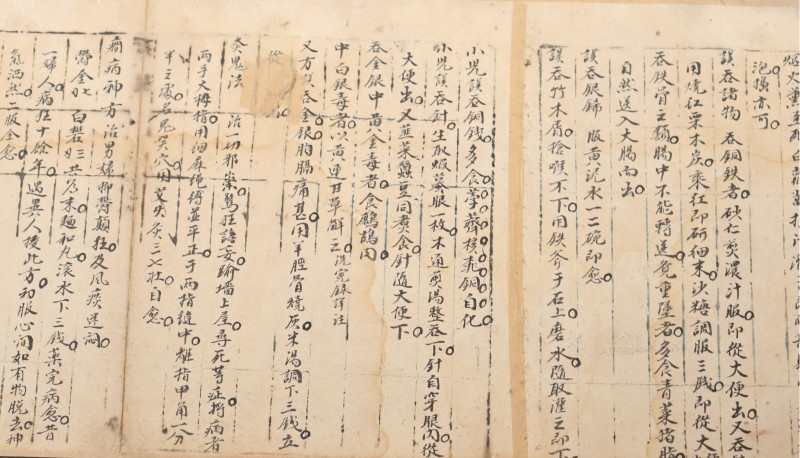 泡搽亦可
誤吞諸物 吞銅鉄者砍仁煎濃汁服即從大便出又吞
用燒紅栗木炭乘紅即研细末沙糖調服三銭即從大
吞鉄骨之類腸中不能轉送覺重墜者多食青菜猪脂
自然送入大腸而出
誤吞銀鎊 服黄泥水一二碗即愈
誤吞竹木屑捨喉不下用鉄斧于石上磨水随取灌之即下
小児誤吞銅銭多食荸薺核桃銅自化
小児誤吞針生取蝦蟇眼一枚木通煎湯整吞下針自穿眼内從
大便出又韮菜蠶豆同煮食針随大便下
吞金銀中黄金毒者食鷓鴣肉
中白銀毒者以黄連甘草解之洗冤録詳注
又方誤吞金銀胸膈痛甚用羊脛骨燒灰米湯調下三銭立
從
灸鬼法 治一切邪祟驚狂譫妄踰墻上屋尋死等症将病者
兩手大拇指用细麻绳缚並平正于兩指縫中離指甲角一分
半之處名鬼哭穴用艾火灸三七壯自愈
癇病神方治男婦抑欝顛狂及風痰迷洞
欝金七 白礬三共为末麺和丸滚水下三銭薬完病愈昔
一婦人病狂十餘年遇異人授此方初服心间如有物脱去神
氣洒然二服全愈